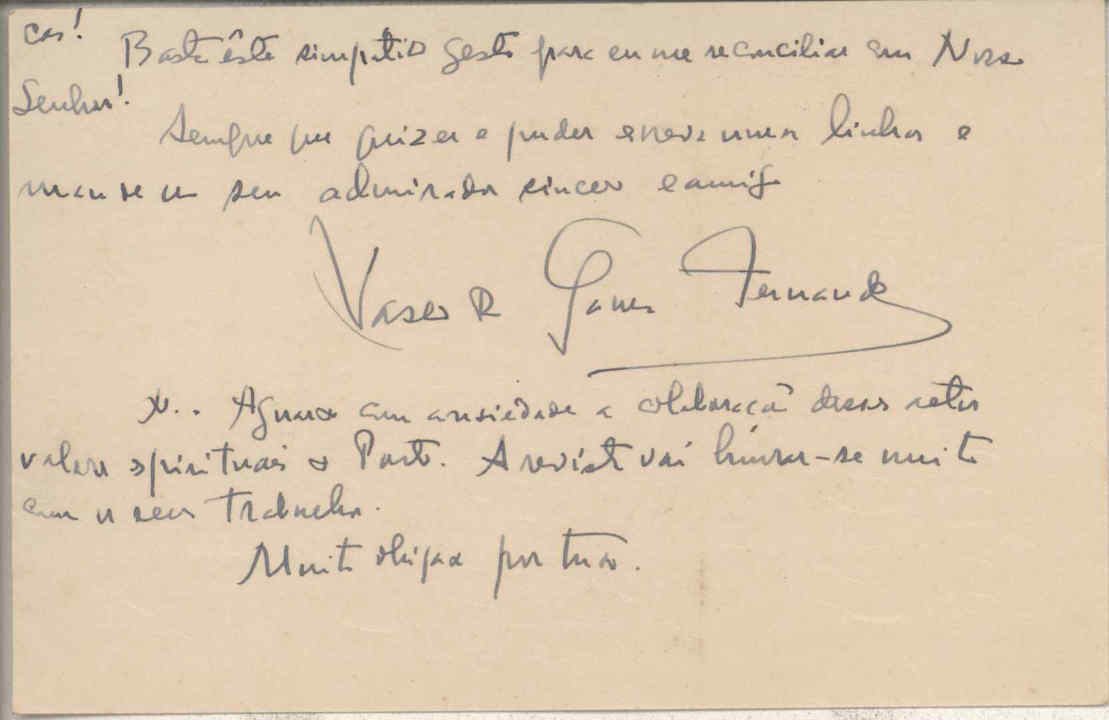 cas!
Basta êste simpatico gesto para eu me reconciliar com Nosso
Senhor!
Sempre que quizer e puder escreva uma linha e
mande no seu admirador sincero e amigo
Vasco R Gomes Fernandes
Aguardo com ansiedade a colaboração desses
valores espirituais do Porto. A revista vai honrar-se muito
com os seus trabalhos.
Muito obrigado por tudo.